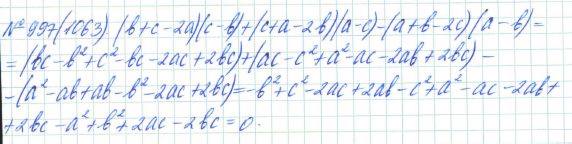 № 997(1063) (b+c-2a)(c-b)+(c+a-2b)(a-c)-(a+b-2c)(a-b)=
=(bc-b²+c²-bc-2ac+2bc)+(ac-c²+a²-ac-2ab+2bc)-
-(a²-ab+ab-b²-2ac+2bc)=-b²+c²-2ac+2ab-c²+a²-ac-2ab+
+2bc-a²+b²+2ac-2bc=0.